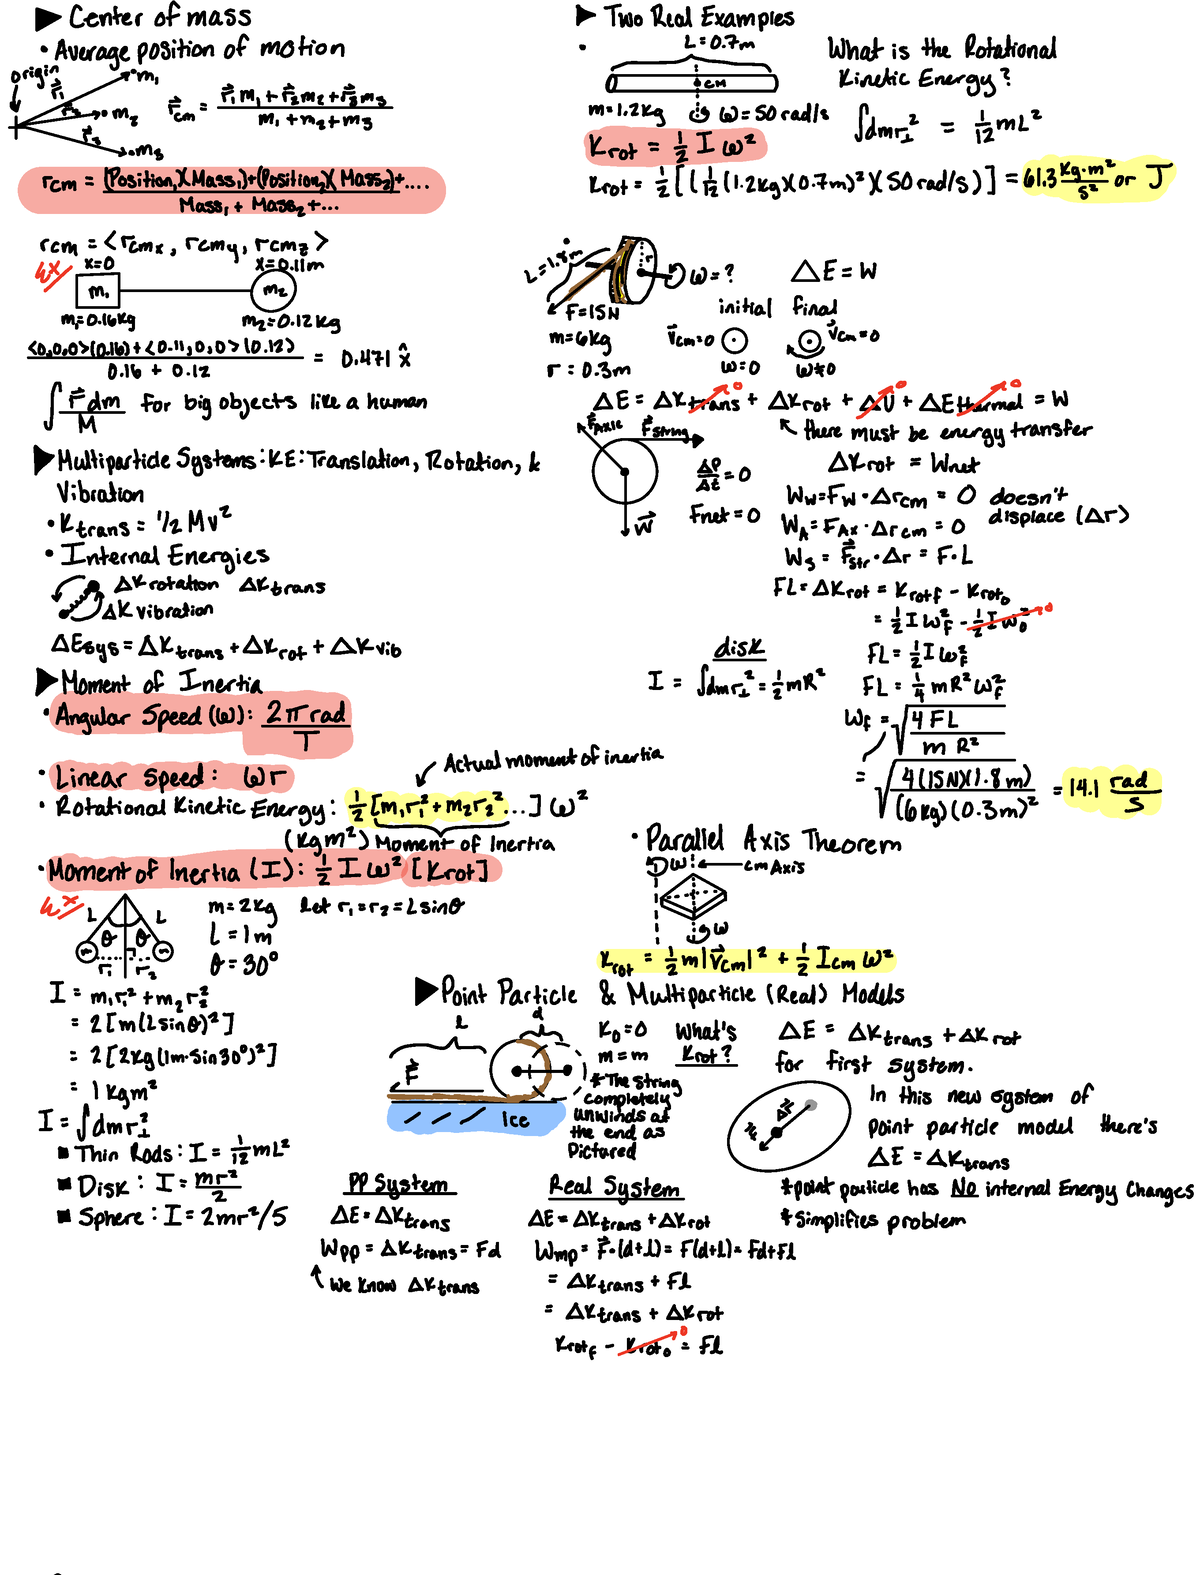 ▶ Center of mass
• Average position of motion
origin
r⃗₁ m₁
r⃗₂ m₂
r⃗₃ m₃
r⃗cm = (r⃗₁m₁ + r⃗₂m₂ + r⃗₃m₃) / (m₁ + m₂ + m₃)
rcm = ((Position₁)(Mass₁)+(Position₂)(Mass₂)+....) / (Mass₁ + Mass₂ +...)
rcm = <rcmx, rcmy, rcmz>
Ex
x=0 x=0.11m
m₁ m₂
m₁=0.16kg m₂=0.12kg
(<0,0,0>(0.16)+<0.11,0,0>(0.12)) / (0.16 + 0.12) = 0.471 x̂
∫ r⃗dm / M for big objects like a human
▶ Multiparticle Systems: KE: Translation, Rotation, &
Vibration
• Ktrans = 1/2 Mv²
• Internal Energies
ΔKrotation ΔKtrans
ΔKvibration
ΔEsys = ΔKtrans + ΔKrot + ΔKvib
▶ Moment of Inertia
• Angular Speed (ω): 2π rad / T
• Linear Speed: ωr
Actual moment of inertia
• Rotational Kinetic Energy: ½[m₁r₁² + m₂r₂²...](ω²
(kgm²) Moment of Inertia
• Moment of Inertia (I): ½ I ω² [Krot]
Ex
L L
θ θ
m m
r₁ r₂
m=2kg let r₁=r₂=Lsinθ
L=1m
θ=30°
I = m₁r₁² + m₂r₂²
= 2[m(Lsinθ)²]
= 2[2kg(1m·sin30°)²]
= 1 kgm²
I = ∫dmr⊥²
■ Thin Rods: I = 1/12 mL²
■ Disk: I = mr²/2
■ Sphere: I = 2mr²/5
▶ Two Real Examples
• L=0.7m
CM
m=1.2kg ω=50 rad/s
What is the Rotational
Kinetic Energy?
∫dmr⊥² = 1/12 mL²
Krot = ½ I ω²
Krot = ½[(1/12(1.2kg)(0.7m)²)(50 rad/s)] = 61.3 kg·m²/s² or J
•
L=1.8m
r
ω=? ΔE=W
F=15N
m=6kg
r=0.3m
initial final
v⃗cm=0 v⃗cm=0
ω=0 ω≠0
ΔE = ΔKtrans⁰ + ΔKrot + ΔU⁰ + ΔEthermal⁰ = W
there must be energy transfer
F⃗Axle F⃗String
W⃗
ΔP/Δt = 0
Fnet=0
ΔKrot = Wnet
Ww=Fw·Δrcm = 0 doesn't
displace (Δr)
WA=FAx·Δrcm = 0
Ws = F⃗str·Δr = F·L
FL=ΔKrot = Krotf - Kroto
= ½Iωf² - ½Iω₀² 0
FL=½Iωf²
disk
I = ∫dmr⊥² = ½mR²
FL = ¼mR²ωf²
Wf = √(4FL / mR²)
= √(4(15N)(1.8m) / (6kg)(0.3m)²) = 14.1 rad/s
• Parallel Axis Theorem
ω cm Axis
ω
Krot = ½m|v⃗cm|² + ½Icmω²
▶ Point Particle & Multiparticle (Real) Models
l d
F⃗
Ice
K₀=0
m=m
What's
Krot?
*The string
completely
unwinds at
the end as
Pictured
ΔE = ΔKtrans + ΔKrot
for first system.
Δr⃗
In this new system of
point particle model there's
ΔE = ΔKtrans
*point particle has NO internal Energy Changes
*Simplifies problem
PP System
ΔE=ΔKtrans
Wpp = ΔKtrans = Fd
We know ΔKtrans
Real System
ΔE=ΔKtrans + ΔKrot
Wmp = F⃗·(d+l) = F(d+l) = Fd+Fl
= ΔKtrans + Fl
= ΔKtrans + ΔKrot
Krotf - Kroto⁰ = Fl